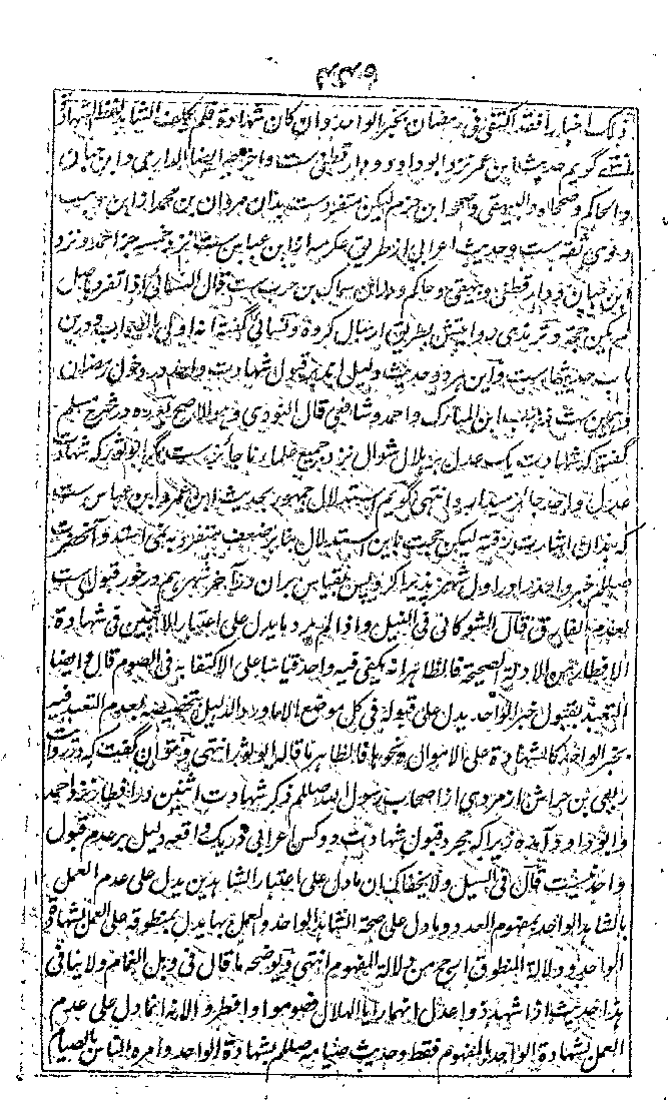 ذلك اخبارا فقد اكتفى فى رمضان بخبر الواحد وان كان شهادة فلم يكلف الشاهد لفظ الشهادة
انتهے گويم حديث ابن عمر نزد ابو داود و دارقطنى ست واخرجه ايضا الدارمى وابن حبان
والحاكم وصححاه والبيهقى وصححه ابن حزم ليكن متفرد ست بدان مروان بن محمد از ابن وهب
و وى ثقه ست و حديث اعرابى از طريق عكرمه از ابن عباس ست نزد خمسه جز احمد و نزد
ابن حبان و دارقطنى و بيهقى و حاكم و در ان سماك بن حرب ست قال النسائى اذا تفرد باصل
لم يكن حجة و ترمذى روايتش بطريق ارسال كرده و نسائى گفته انه اولى بالصواب و درين
باب حديثها ست و اين هر دو حديث دليل اند بر قبول شهادت واحد در دخول رمضان
و همين ست مذهب ابن المبارك و احمد و شافعى قال النووى وهو الاصح و در شرح مسلم
گفته كه شهادت يك عدل بر هلال شوال نزد جميع علماء نا جائز ست مگر ابو ثور كه شهادت
عدل واحد جائز ميدارد انتهى گويم استدلال جمهور بحديث ابن عمر و ابن عباس ست
كه بدان اشارت رفته ليكن حجت باين استدلال بنا بر ضعف متفرد به نمى استد و آنحضرت
صللم خبر واحد را در اول شهر پذيرا كرد پس بقياس بران در آخر شهر هم در خور قبول ست
لعدم الفارق قال الشوكانى فى النيل واذا لم يرد ما يدل على اعتبار الاثنين فى شهادة
الافطار من الادلة الصحيحة فالظاهر انه يكفى فيه واحد قياسا على الاكتفاء به فى الصوم قال وايضا
التعبد بقبول خبر الواحد يدل على قبوله فى كل موضع الا ما ورد الدليل بتخصيصه بعدم التعبد فيه
بخبر الواحد كالشهادة على الاموال ونحوها فالظاهر ما قاله ابو ثور انتهى و نتوان گفت كه در روايت
ربعى بن حراش از مردى از اصحاب رسول الله صللم ذكر شهادت اثنين در افطار نزد احمد
و ابو داود آمده زيرا كه مجرد قبول شهادت دو كس اعرابى در يك واقعه دليل بر عدم قبول
واحد نيست قال فى السيل ولا يخفاك ان ما دل على اعتبار الشاهدين يدل على عدم العمل
بالشاهد الواحد بمفهوم العدد وما دل على صحة الشاهد الواحد والعمل بها يدل بمنطوقه على العمل بشهادة
الواحد ودلالة المنطوق ارجح من دلالة المفهوم انتهى و يوضحه ما قال فى وبل الغمام ولا ينافى
هذا حديث اذا شهد ذوا عدل انهما رايا الهلال فصوموا وافطروا لانه انما دل على عدم
العمل بشهادة الواحد بالمفهوم فقط وحديث صيامه صللم بشهادة الواحد وامره الناس بالصيام